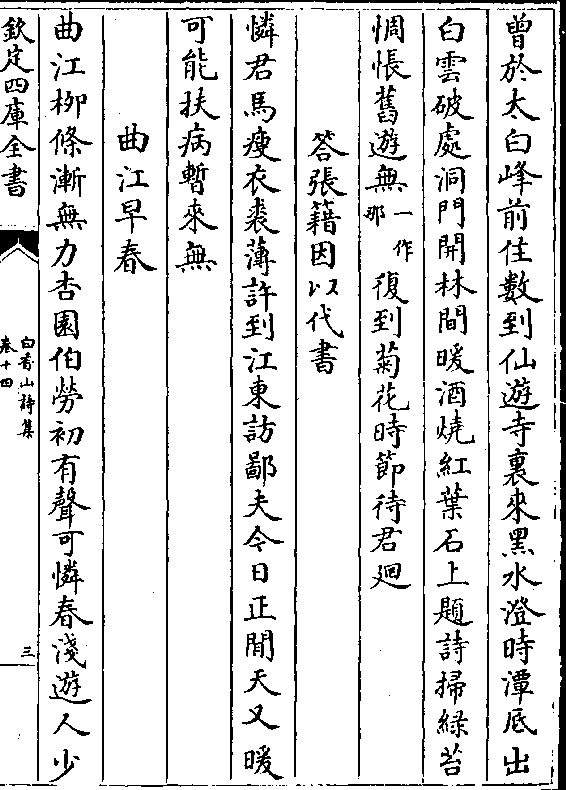 曾於太白峰前住數到仙遊寺裏來黑水澄時潭底出
白雲破處洞門開林間暖酒燒紅葉石上題詩掃綠苔
惆悵舊遊無一作那復到菊花時節待君廻
答張籍因以代書
憐君馬瘦衣裘薄許到江東訪鄙夫今日正閒天又暖
可能扶病暫來無
曲江早春
曲江栁條漸無力杏園伯勞初有聲可憐春淺遊人少
欽定四庫全書
白香山詩集
卷十四
三